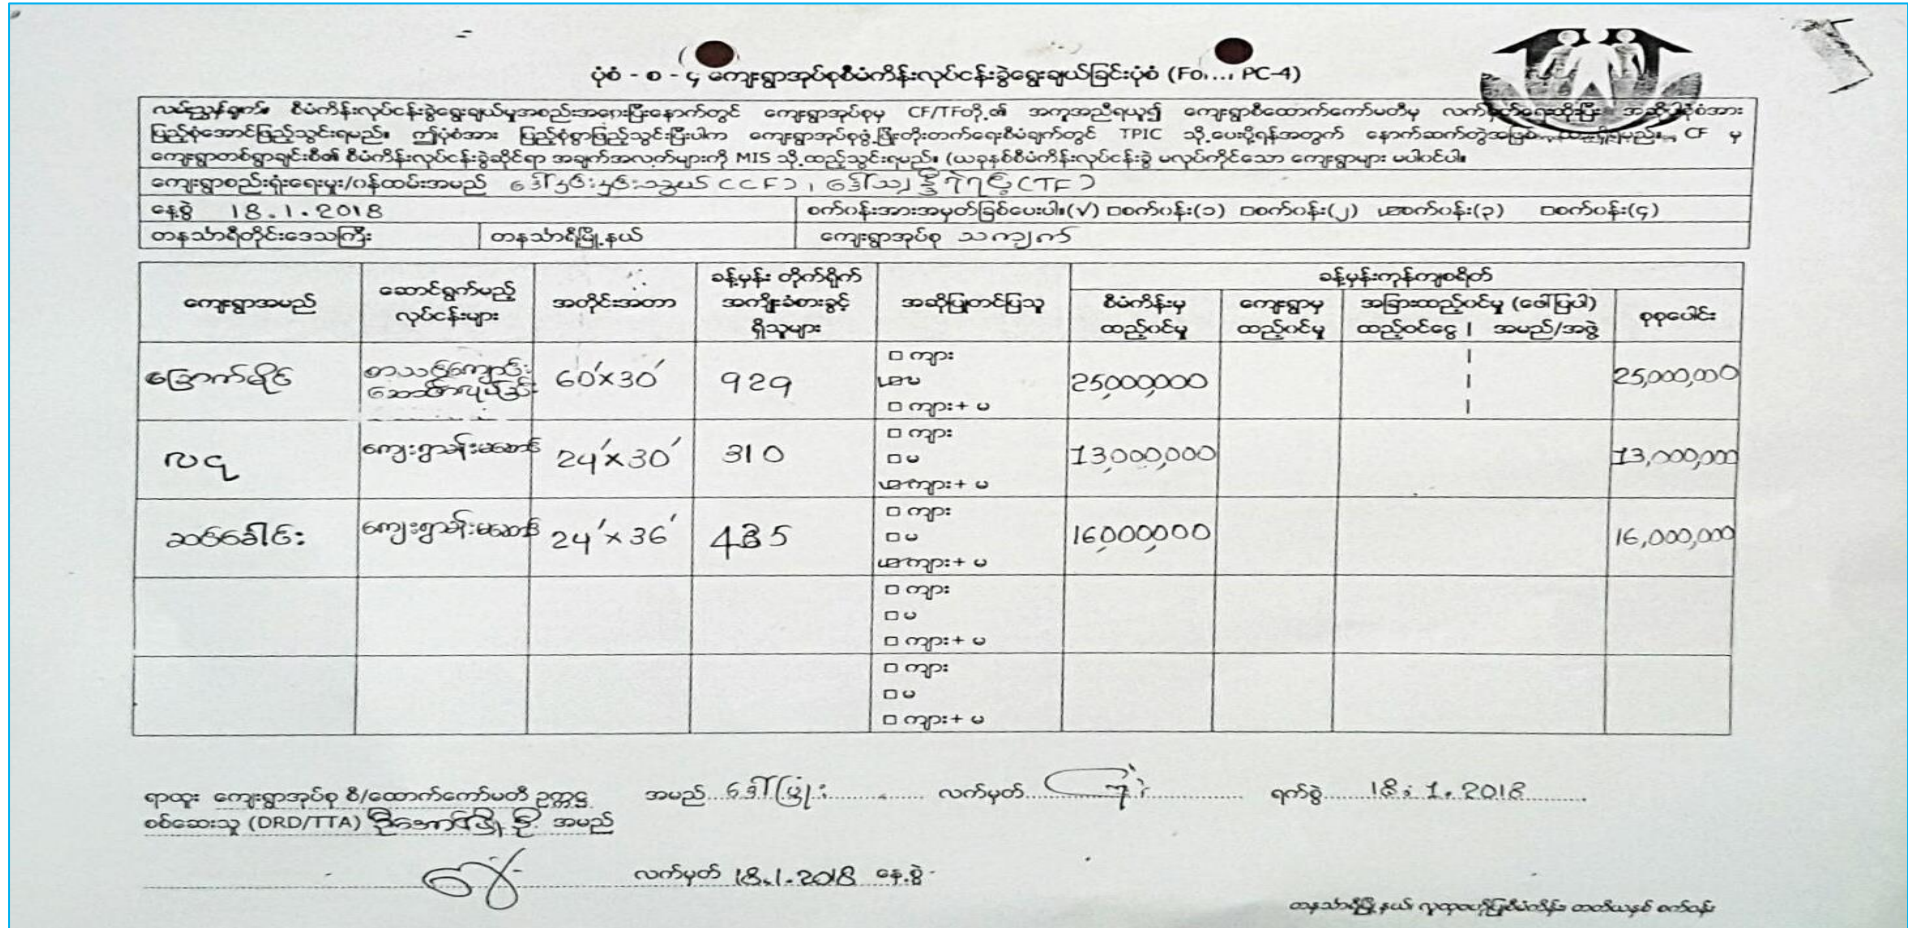 ပုံစံ - စ - ၄ ကျေးရွာအုပ်စုစီမံကိန်းလုပ်ငန်းခွဲရွေးချယ်ခြင်းပုံစံ (Fo... PC-4)
လမ်းညွှန်ချက်။ စီမံကိန်းလုပ်ငန်းခွဲရွေးချယ်မှုအစည်းအဝေးပြီးနောက်တွင် ကျေးရွာအုပ်စုမှ CF/TFတို့၏ အကူအညီရယူ၍ ကျေးရွာစီထောက်ကော်မတီမှ
ပြည့်စုံအောင်ဖြည့်သွင်းရမည်။ ဤပုံစံအား ပြည့်စုံစွာဖြည့်သွင်းပြီးပါက ကျေးရွာအုပ်စုဖွံ့ဖြိုးတိုးတက်ရေးစီမံချက်တွင် TPIC သို့ပေးပို့ရန်အတွက် နောက်ဆက်တွဲအဖြစ် CF မှ
ကျေးရွာတစ်ရွာချင်းစီ၏ စီမံကိန်းလုပ်ငန်းခွဲဆိုင်ရာ အချက်အလက်များကို MIS သို့ထည့်သွင်းရမည်။ (ယခုနှစ်စီမံကိန်းလုပ်ငန်းခွဲ မလုပ်ကိုင်သော ကျေးရွာများ မပါဝင်ပါ။
ကျေးရွာစည်းရုံးရေးမှူး/ဝန်ထမ်းအမည် (CF), (TF)
နေ့စွဲ 18.1.2018 စက်ဝန်းအားအမှတ်ခြစ်ပေးပါ။(√) □စက်ဝန်း(၁) □စက်ဝန်း(၂) ☑စက်ဝန်း(၃) □စက်ဝန်း(၄)
တနင်္သာရီတိုင်းဒေသကြီး တနင်္သာရီမြို့နယ် ကျေးရွာအုပ်စု သကျက်
ကျေးရွာအမည် ဆောင်ရွက်မည့် လုပ်ငန်းများ အတိုင်းအတာ ခန့်မှန်း တိုက်ရိုက် အကျိုးခံစားခွင့် ရှိသူများ အဆိုပြုတင်ပြသူ ခန့်မှန်းကုန်ကျစရိတ်
စီမံကိန်းမှ ထည့်ဝင်မှု ကျေးရွာမှ ထည့်ဝင်မှု အခြားထည့်ဝင်မှု (ဖော်ပြပါ) ထည့်ဝင်ငွေ | အမည်/အဖွဲ့ စုစုပေါင်း
60'x30' 929 □ ကျား ☑မ □ ကျား+ မ 25,000,000 25,000,000
24'x30' 310 □ ကျား □မ ☑ကျား+ မ 13,000,000 13,000,000
ဆင်ခေါင်း 24'x36' 435 □ ကျား □မ ☑ကျား+ မ 16,000,000 16,000,000
□ ကျား □မ □ ကျား+ မ
□ ကျား □မ □ ကျား+ မ
ရာထူး ကျေးရွာအုပ်စု စီ/ထောက်ကော်မတီ ဥက္ကဋ္ဌ အမည် လက်မှတ် ရက်စွဲ 18.1.2018
စစ်ဆေးသူ (DRD/TTA) အမည်
လက်မှတ် 18.1.2018 နေ့စွဲ
တနင်္သာရီမြို့နယ် လူထုဗဟိုပြုစီမံကိန်း တတိယနှစ် စက်ဝန်း